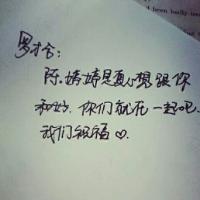 罗才合:
陈婷婷是真心想跟你
和好,你们就在一起吧,
我们祝福♡.
been badly